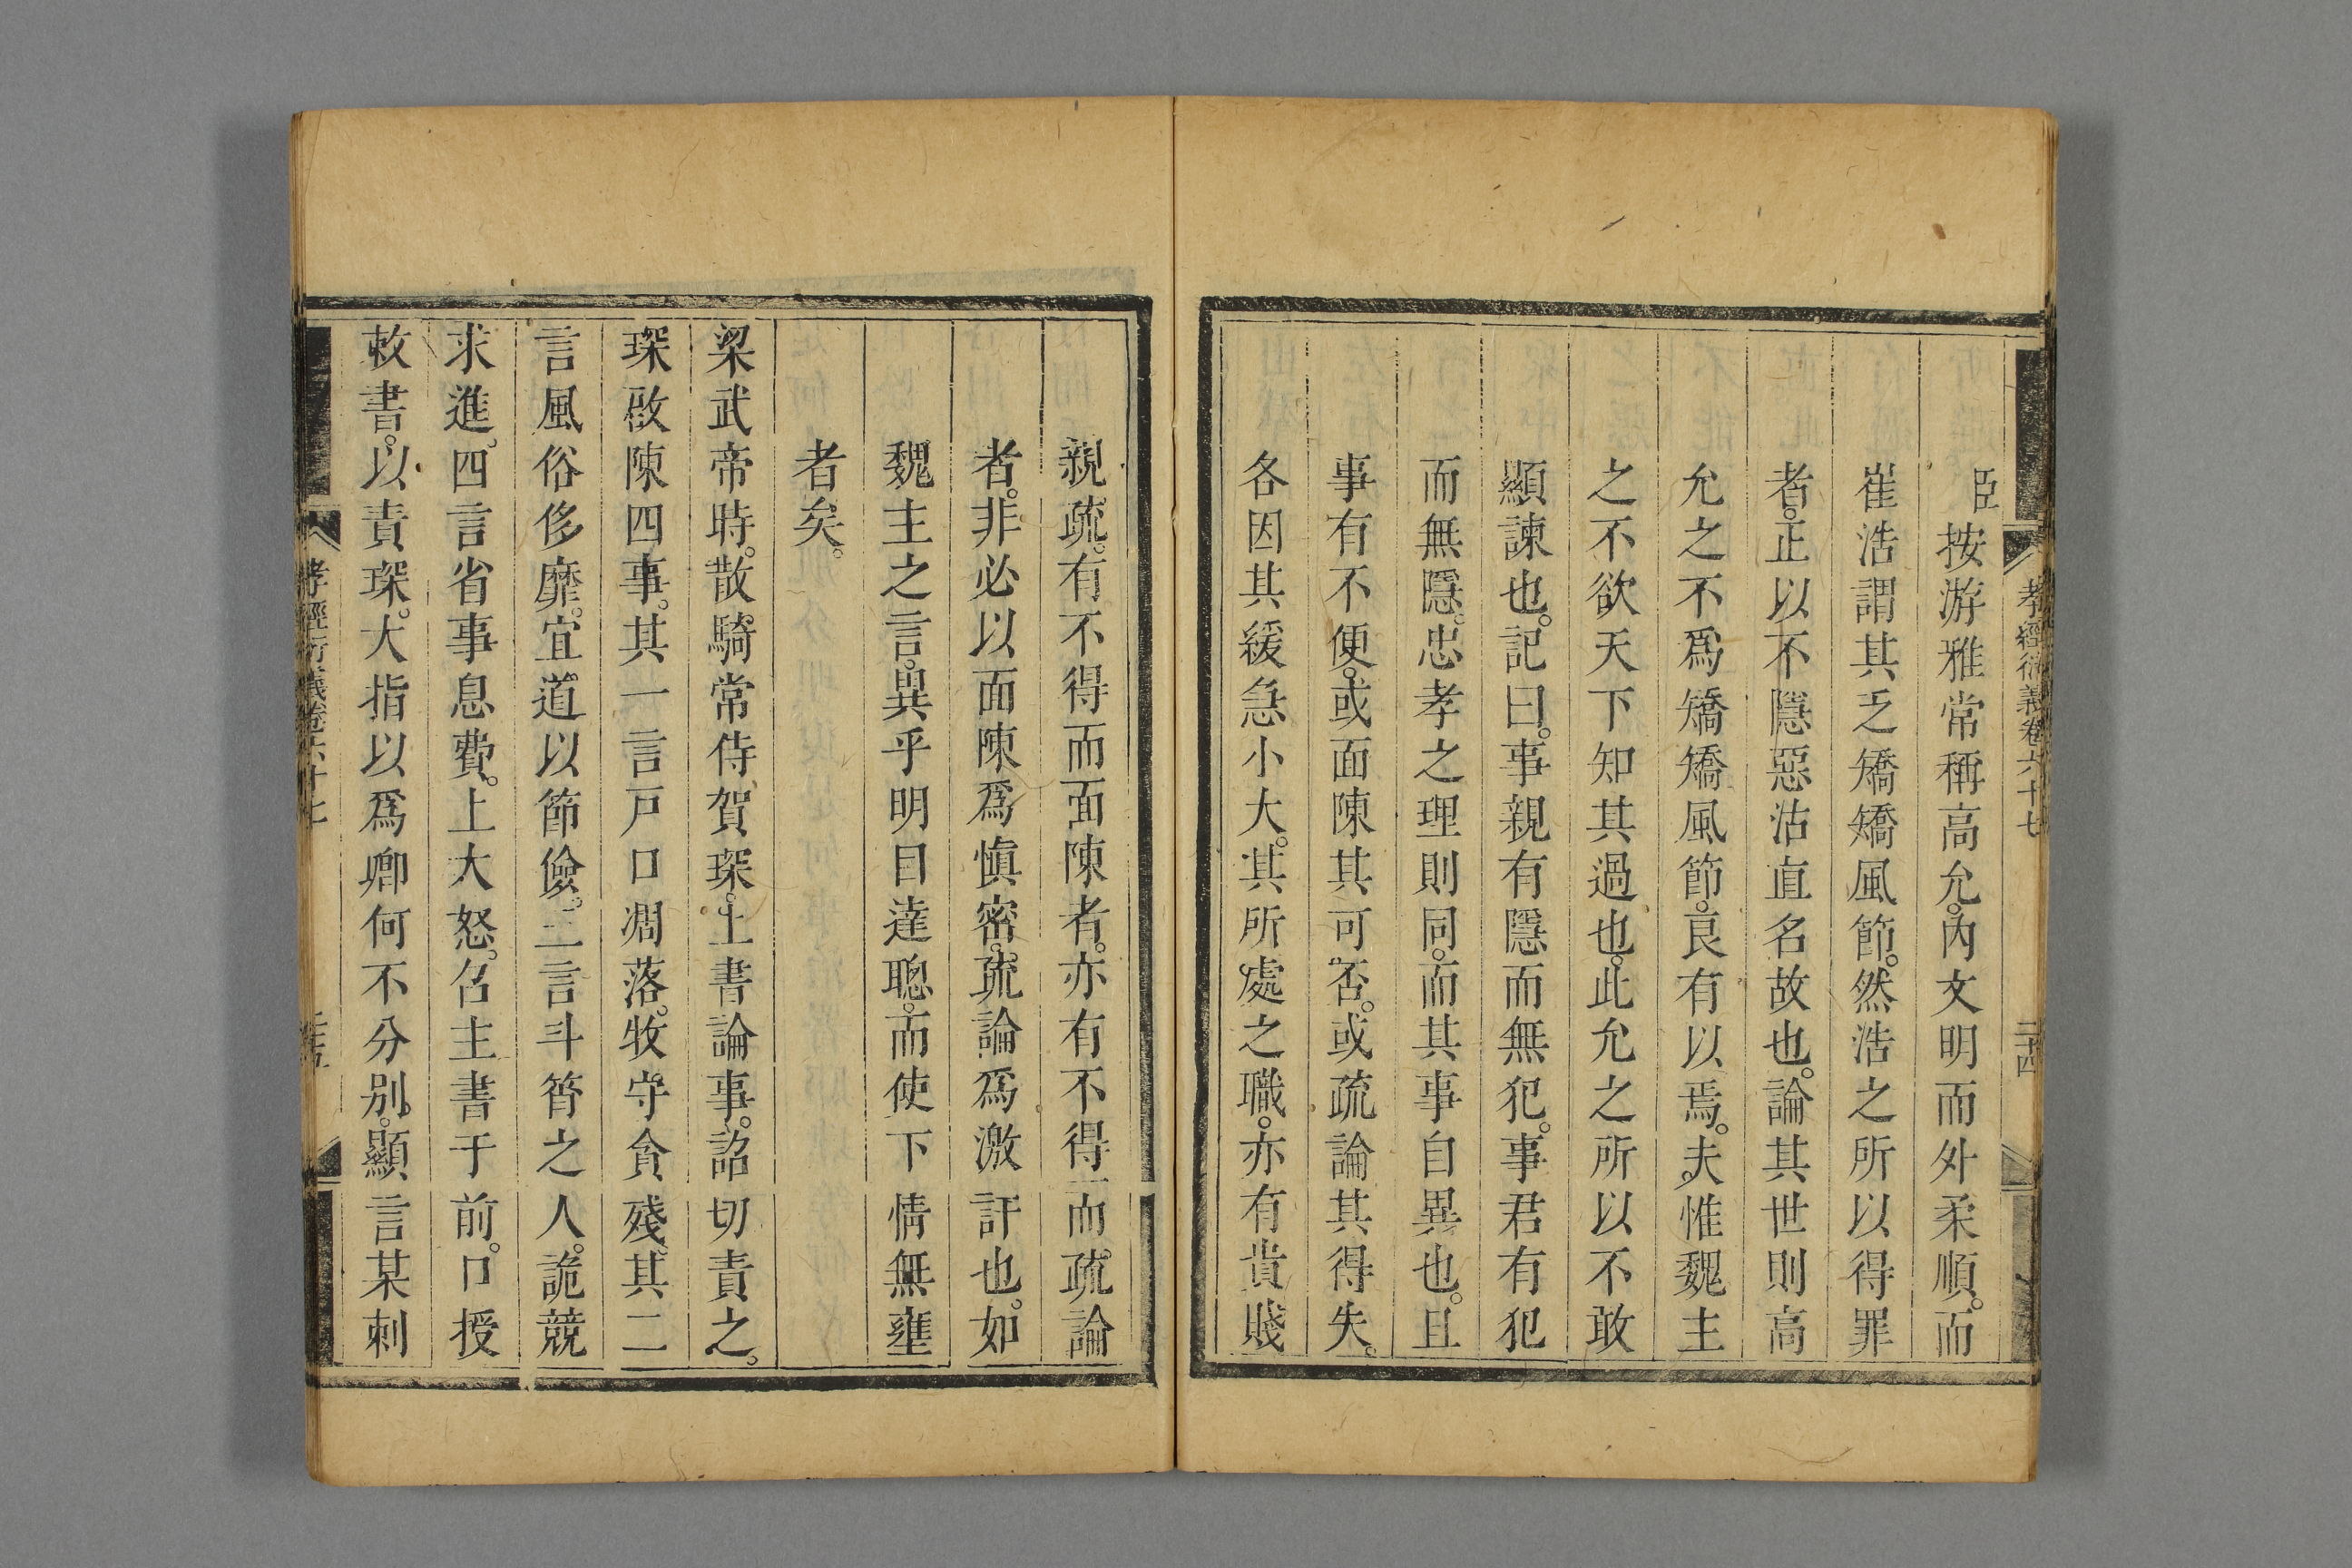 孝經衍義卷六十七
二十四
臣按游雅常稱高允。內文明而外柔順。而
崔浩謂其乏矯矯風節。然浩之所以得罪
者。正以不隱惡沽直名故也。論其世則高
允之不爲矯矯風節。良有以焉。夫惟魏主
之不欲天下知其過也。此允之所以不敢
顯諫也。記曰。事親有隱而無犯。事君有犯
而無隱。忠孝之理則同。而其事自異也。且
事有不便。或面陳其可否。或疏論其得失。
各因其緩急小大。其所處之職。亦有貴賤
親疏。有不得而面陳者。亦有不得而疏論
者。非必以面陳爲愼密。疏論爲激訐也。如
魏主之言。異乎明目達聰。而使下情無壅
者矣。
梁武帝時。散騎常侍賀琛。上書論事。詔切責之。
琛啟陳四事。其一言戸口凋落。牧守貪殘。其二
言風俗侈靡。宜道以節儉。三言斗筲之人。詭競
求進。四言省事息費。上大怒。召主書于前。口授
敕書。以責琛。大指以爲卿何不分別。顯言某刺
孝經衍義卷六十七
二十五